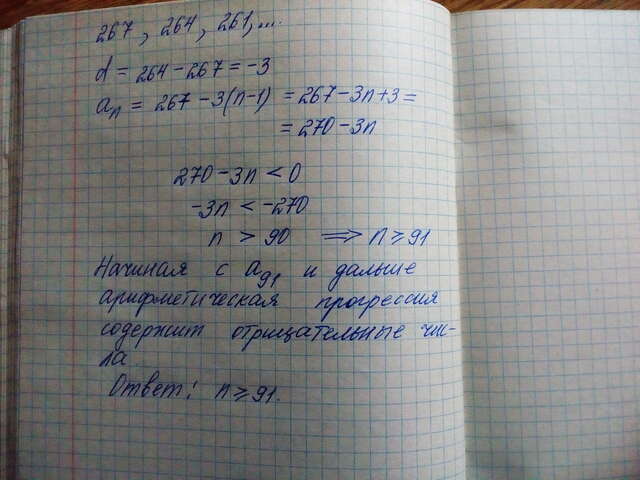 267, 264, 261,...
d = 264 - 267 = -3
aₙ = 267 - 3(n-1) = 267 - 3n + 3 =
= 270 - 3n
270 - 3n < 0
-3n < -270
n > 90 ⟹ n ≥ 91
Начиная с a₉₁ и дальше
арифметическая прогрессия
содержит отрицательные чис-
ла
Ответ: n ≥ 91.